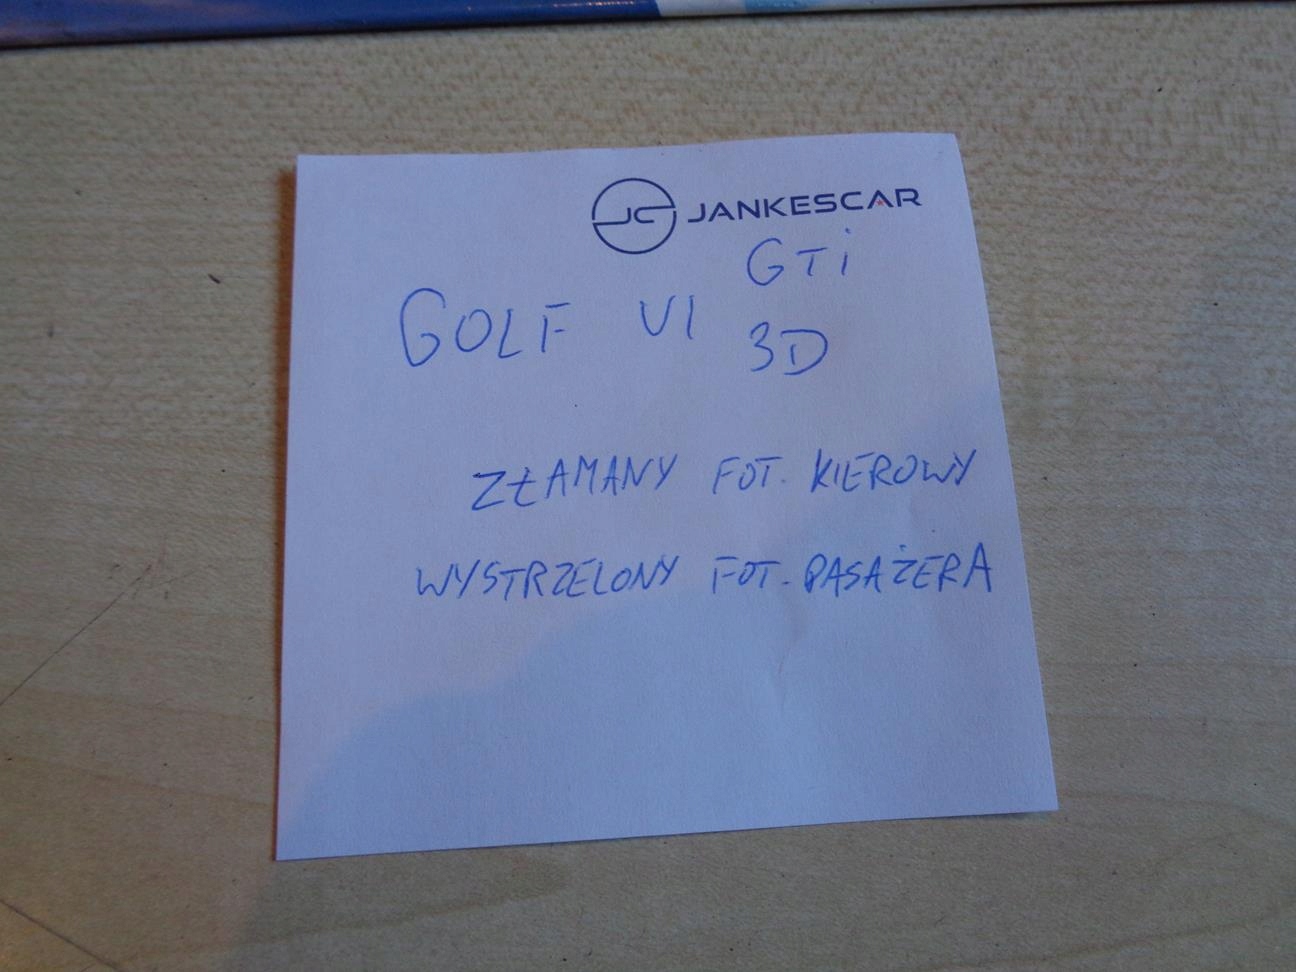 JC JANKESCAR
GTi
GOLF VI
3D
ZŁAMANY FOT. KIEROWY
WYSTRZELONY FOT. PASAŻERA